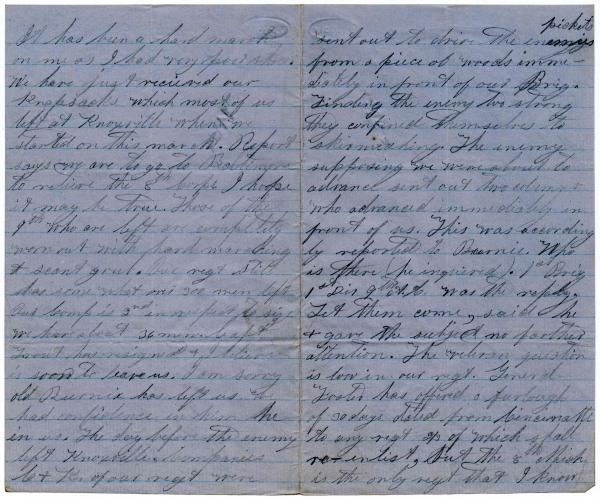 It has been a hard march
on me as I had very poor shoes.
We have just recieved our
Knapsacks which most of us
left at Knoxville when we
started on this march. Report
says we are to go to Baltimore
to relieve the 8th corps I hope
it may be true. Those of the
9th who are left are completly
worn out with hard marching
& scant grub. Our regt still
has some what over 300 men left
Our comp is 2nd in respect to size
we have about 36 men Capt
has resigned & I believe
is soon to leave us. I am sorry
old Burnie has left us. We
had confidence in him he
in us. The day before the enemy
left Knoxville Companies
& K. of our regt were
pickets
sent out to drive the enemys
from a piece of woods imme-
diatly in front of our Brig.
Finding the enemy two strong
they confined themselves to
skirmishing. The enemy
supposing we were about to
advance sent out two columns
who advanced immediatly in
front of us. This was according
ly reported to Burnie. Who
is there he inquired. 1st Brig
1st Div 9th A.C. was the reply.
Let them come, said he
& gave the subject no farther
attention. The veteran question
is now in our regt. General
Foster has offered a furlough
of 30 days dated from Cincinatti
to any regt of which
reenlist, But the 8th Mich
is the only regt that I know